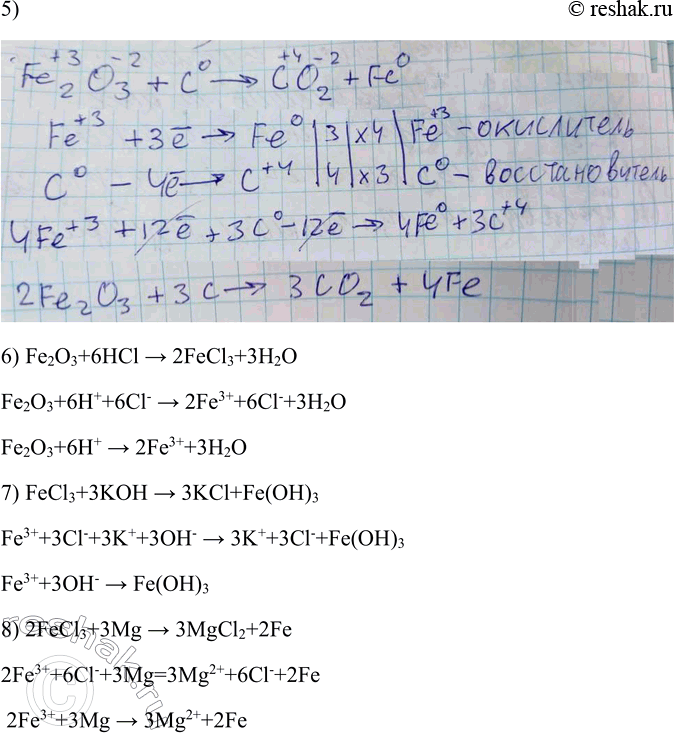 5)
© reshak.ru
Fe₂⁺³O₃⁻² + C⁰ → C⁺⁴O₂⁻² + Fe⁰
Fe⁺³ + 3ē → Fe⁰ | 3 | ×4 | Fe⁺³ - окислитель
C⁰ - 4ē → C⁺⁴ | 4 | ×3 | C⁰ - восстановитель
4Fe⁺³ + 12ē + 3C⁰ - 12ē → 4Fe⁰ + 3C⁺⁴
2Fe₂O₃ + 3C → 3CO₂ + 4Fe
6) Fe₂O₃+6HCl → 2FeCl₃+3H₂O
Fe₂O₃+6H⁺+6Cl⁻ → 2Fe³⁺+6Cl⁻+3H₂O
Fe₂O₃+6H⁺ → 2Fe³⁺+3H₂O
7) FeCl₃+3KOH → 3KCl+Fe(OH)₃
Fe³⁺+3Cl⁻+3K⁺+3OH⁻ → 3K⁺+3Cl⁻+Fe(OH)₃
Fe³⁺+3OH⁻ → Fe(OH)₃
8) 2FeCl₃+3Mg → 3MgCl₂+2Fe
2Fe³⁺+6Cl⁻+3Mg=3Mg²⁺+6Cl⁻+2Fe
2Fe³⁺+3Mg → 3Mg²⁺+2Fe
reshak.ru
©